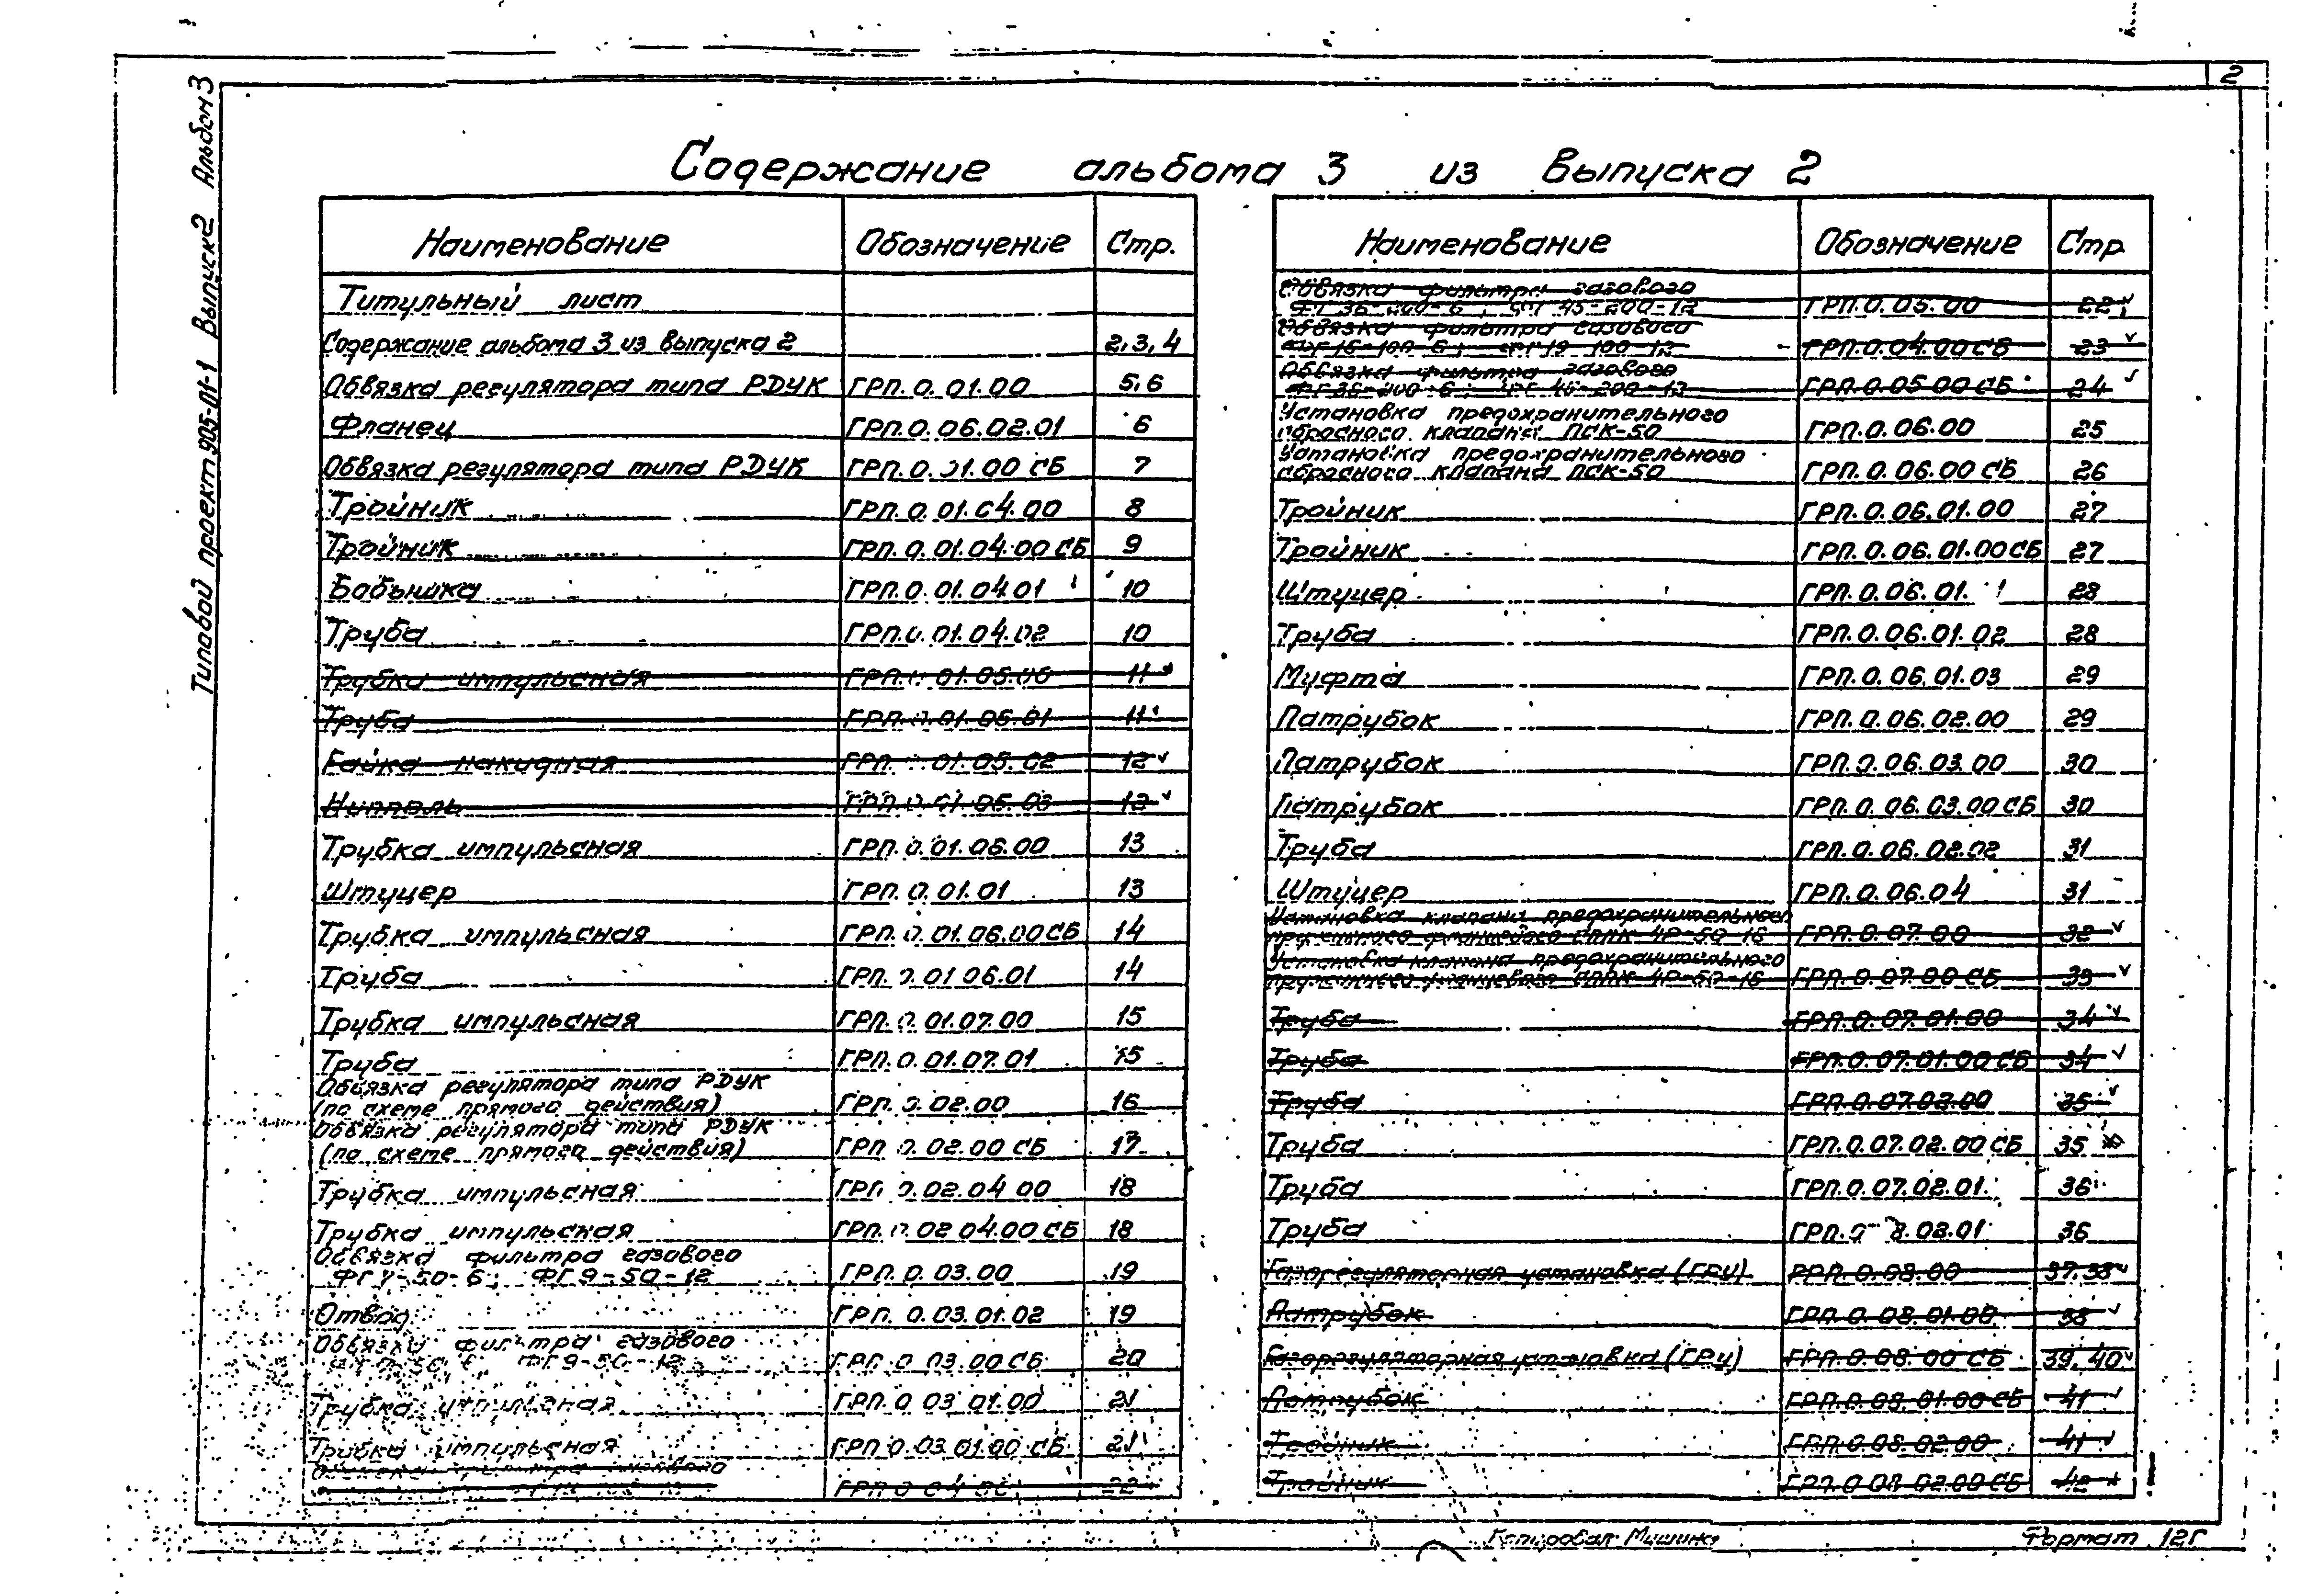 2
Типовой проект 905-01-1 Выпуск 2 Альбом 3
Содержание альбома 3 из выпуска 2
Наименование Обозначение Стр.
Титульный лист
Содержание альбома 3 из выпуска 2 2,3,4
Обвязка регулятора типа РДУК ГРП.0.01.00 5,6
Фланец ГРП.0.06.02.01 6
Обвязка регулятора типа РДУК ГРП.0.01.00 СБ 7
Тройник ГРП.0.01.04.00 8
Тройник ГРП.0.01.04.00 СБ 9
Бобышка ГРП.0.01.04.01 10
Труба ГРП.0.01.04.02 10
Трубка импульсная ГРП.0.01.05.00 11
Труба ГРП.0.01.05.01 11
Гайка накидная ГРП.0.01.05.02 12
Ниппель ГРП.0.01.05.03 12
Трубка импульсная ГРП.0.01.06.00 13
Штуцер ГРП.0.01.01 13
Трубка импульсная ГРП.0.01.06.00 СБ 14
Труба ГРП.0.01.06.01 14
Трубка импульсная ГРП.0.01.07.00 15
Труба ГРП.0.01.07.01 15
Обвязка регулятора типа РДУК
(по схеме прямого действия) ГРП.0.02.00 16
Обвязка регулятора типа РДУК
(по схеме прямого действия) ГРП.0.02.00 СБ 17
Трубка импульсная ГРП.0.02.04.00 18
Трубка импульсная ГРП.0.02.04.00 СБ 18
Обвязка фильтра газового
ФГ7-50-6; ФГ9-50-12 ГРП.0.03.00 19
Отвод ГРП.0.03.01.02 19
Обвязка фильтра газового
ФГ9-50-12 ГРП.0.03.00 СБ 20
Трубка импульсная ГРП.0.03.01.00 21
Трубка импульсная ГРП.0.03.01.00 СБ 21
ГРП.0.04.00 22
Наименование Обозначение Стр.
Обвязка фильтра газового
ФГ36-200-6; ФГ45-200-12 ГРП.0.05.00 22
Обвязка фильтра газового
ФГ16-100-6; ФГ19-100-12 ГРП.0.04.00 СБ 23
Обвязка фильтра газового
ФГ36-200-6; ФГ46-200-12 ГРП.0.05.00 СБ 24
Установка предохранительного
сбросного клапана ПСК-50 ГРП.0.06.00 25
Установка предохранительного
сбросного клапана ПСК-50 ГРП.0.06.00 СБ 26
Тройник ГРП.0.06.01.00 27
Тройник ГРП.0.06.01.00 СБ 27
Штуцер ГРП.0.06.01. 1 28
Труба ГРП.0.06.01.02 28
Муфта ГРП.0.06.01.03 29
Патрубок ГРП.0.06.02.00 29
Патрубок ГРП.0.06.03.00 30
Патрубок ГРП.0.06.03.00 СБ 30
Труба ГРП.0.06.02.02 31
Штуцер ГРП.0.06.04 31
Установка клапана предохранительного
пружинного фланцевого СППК 4Р-50-16 ГРП.0.07.00 32
Установка клапана предохранительного
пружинного фланцевого СППК 4Р-50-16 ГРП.0.07.00 СБ 33
Труба ГРП.0.07.01.00 34
Труба ГРП.0.07.01.00 СБ 34
Труба ГРП.0.07.02.00 35
Труба ГРП.0.07.02.00 СБ 35
Труба ГРП.0.07.02.01 36
Труба 36
Газорегуляторная установка (ГРУ) ГРП.0.08.00 37,38
Патрубок ГРП.0.08.01.00 38
Газорегуляторная установка (ГРУ) ГРП.0.08.00 СБ 39,40
Патрубок ГРП.0.08.01.00 СБ 41
Тройник ГРП.0.08.02.00 41
Тройник ГРП.0.08.02.00 СБ 42
Копировал Формат 12Г